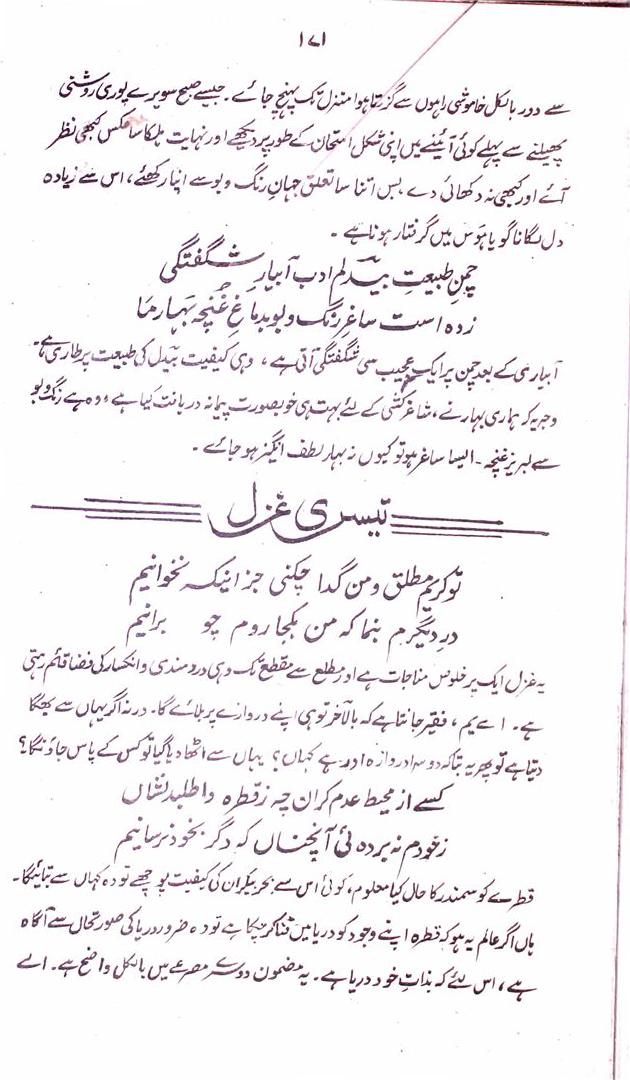 ۱۷۱
سے دور بالکل خاموشی راہوں سے گزرتا ہوا منزل تک پہنچ جائے۔ جیسے صبح سویرے پوری روشنی
پھیلنے سے پہلے کوئی آئینے میں اپنی شکل امتحان کے طور پر دیکھے اور نہایت ہلکا سا عکس کبھی نظر
آئے اور کبھی نہ دکھائی دے بس اتنا سا تعلق جہانِ رنگ و بو سے اپنا رکھئے، اس سے زیادہ
دل لگانا گویا ہوس میں گرفتار ہونا ہے۔
چمنِ طبیعتِ بیدلم ادب آبیارِ شگفتگی
زدہ است ساغرِ رنگ و بو بدماغِ غنچہ بہارِ ما
آبیاری کے بعد چمن پر ایک عجیب سی شگفتگی آتی ہے، وہی کیفیت بیدل کی طبیعت پر طاری ہے۔
وجہ یہ کہ ہماری بہار نے، ساغر کشی کے لئے بہت ہی خوبصورت پیمانہ دریافت کیا ہے، وہ ہے رنگ و بو
سے لبریز غنچہ۔ ایسا ساغر ہو تو کیوں نہ بہار لطف انگیز ہو جائے۔
تیسری غزل
تو کریم مطلق و من گدا چکنی جز اینکہ نخوانیم
درِ دیگرم بنما کہ من بکجا روم چو برانیم
یہ غزل ایک پر خلوص مناجات ہے اور مطلع سے مقطع تک وہی دردمندی و انکسار کی فضا قائم رہتی
ہے۔ اے کریم، فقیر جانتا ہے کہ بالآخر تو ہی اپنے دروازے پر بلائے گا۔ ورنہ اگر یہاں سے بھگا
دیتا ہے تو پھر یہ بتا کہ دوسرا دروازہ اور ہے کہاں؟ یہاں سے اٹھا دیا گیا تو کس کے پاس جاؤنگا؟
کسے از محیط عدم کران چہ ز قطرہ واطلبد نشاں
ز خودم نہ بردہ ئی آنچناں کہ دگر بخود نرسانیم
قطرے کو سمندر کا حال کیا معلوم، کوئی اس سے بحرِ بیکراں کی کیفیت پوچھے تو وہ کہاں سے بتائیگا۔
ہاں اگر عالم یہ ہو کہ قطرہ اپنے وجود کو دریا میں فنا کر چکا ہے تو وہ ضرور دریا کی صورتحال سے آگاہ
ہے، اس لئے کہ بذاتِ خود دریا ہے۔ یہ مضمون دوسرے مصرعے میں بالکل واضح ہے۔ اے